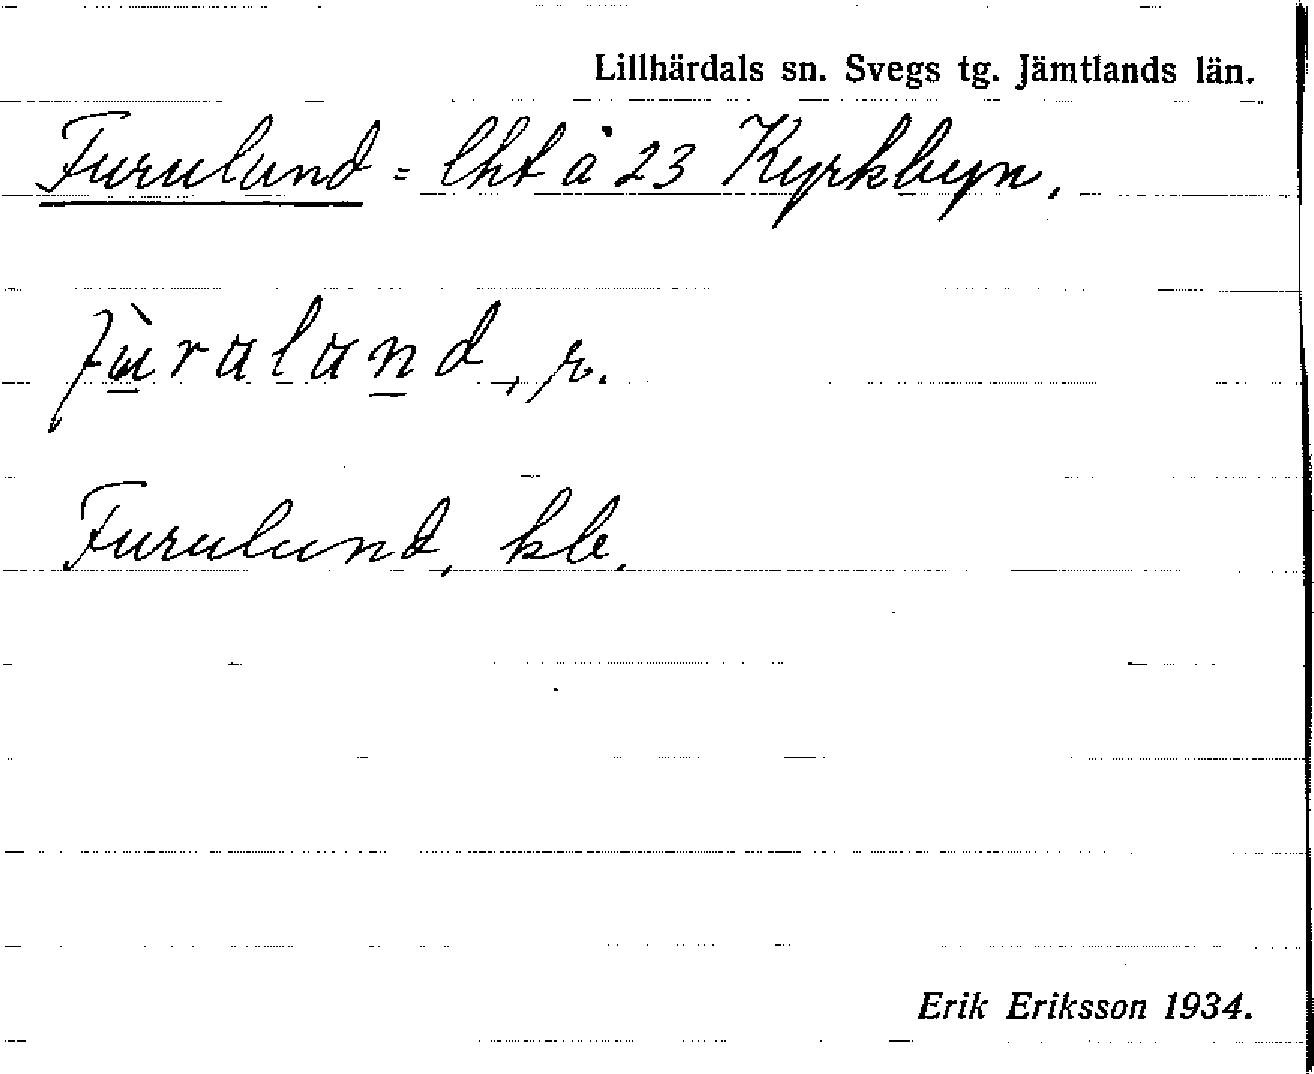 Lillhärdals sn. Svegs tg. Jämtlands län.
Furulund = lht å 23 Kyrkbyn.
Furulund, kb.
Erik Eriksson 1934.